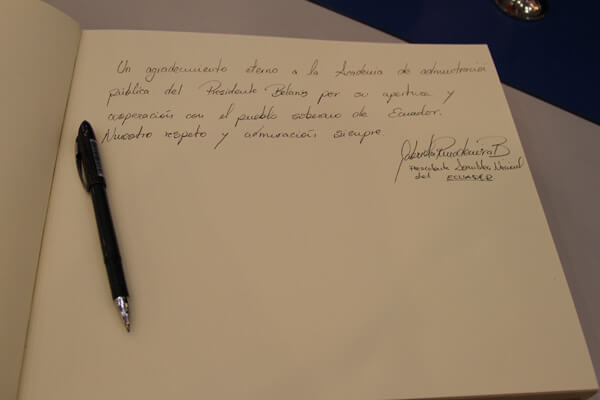 Un agradecimiento eterno a la Academia de administración
pública del Presidente Belarús por su apertura y
cooperación con el pueblo soberano de Ecuador.
Nuestro respeto y admiración siempre.
Gabriela Rivadeneira B
Presidenta Asamblea Nacional
del ECUADOR